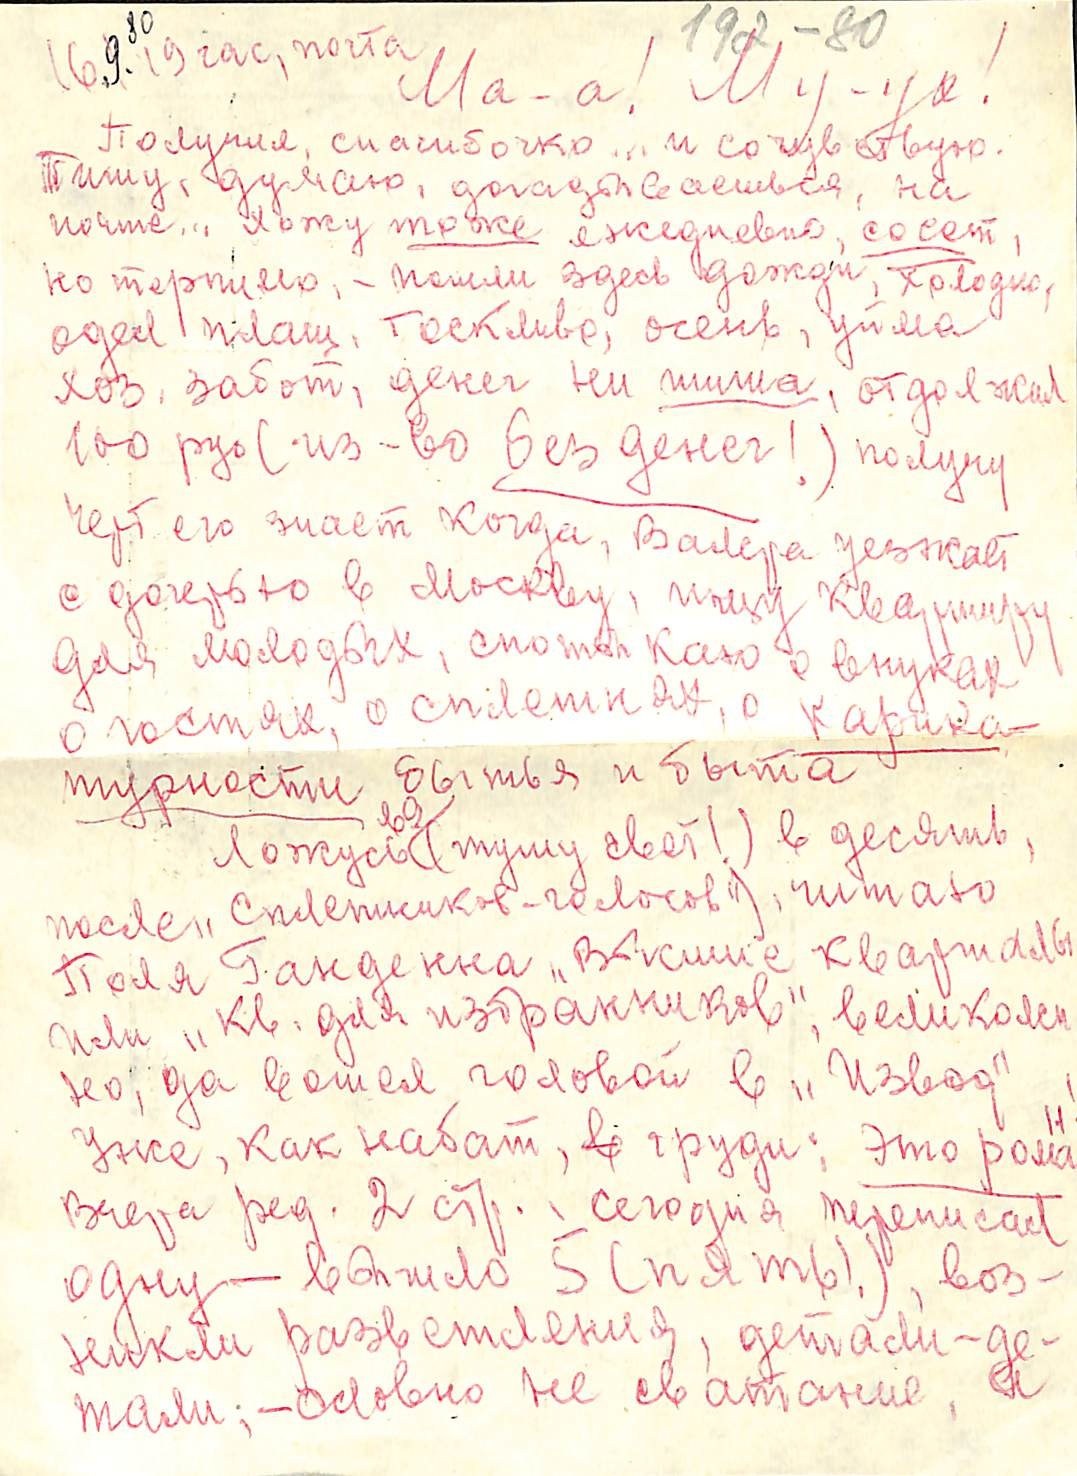 192-80
16.9.80 19 час, почта
Ма-а! Му-уя!
Получил, спасибочко... и сочувствую.
Пишу, думаю, догадываешься, на
почте... Хожу тоже ежедневно, сосет,
но терпимо, - пошли здесь дожди, холодно,
одел плащ. Тоскливо, осень, уйма
хоз. забот, денег ни шиша, отдолжил
100 руб (из-во без денег!) получу
черт его знает когда, Валера уезжает
с дочерью в Москву, ищу квартиру
для молодых, спотыкаю о внуках
о гостях, о сплетнях, о карика-
турности бытья и быта
Ложусь (тушу свет!) в десять,
после „сплетников-голосов"), читаю
Поля Гандена „Высшие кварталы
или „Кв. для избранников", великолеп
но, да вошел головой в „Извод",
Уже, как набат, в груди: это роман
Вчера ред. 2 стр., сегодня переписал
одну — вышло 5 (пять!), воз-
никли разветвления, детали-де-
тали; - словно не сватание, а